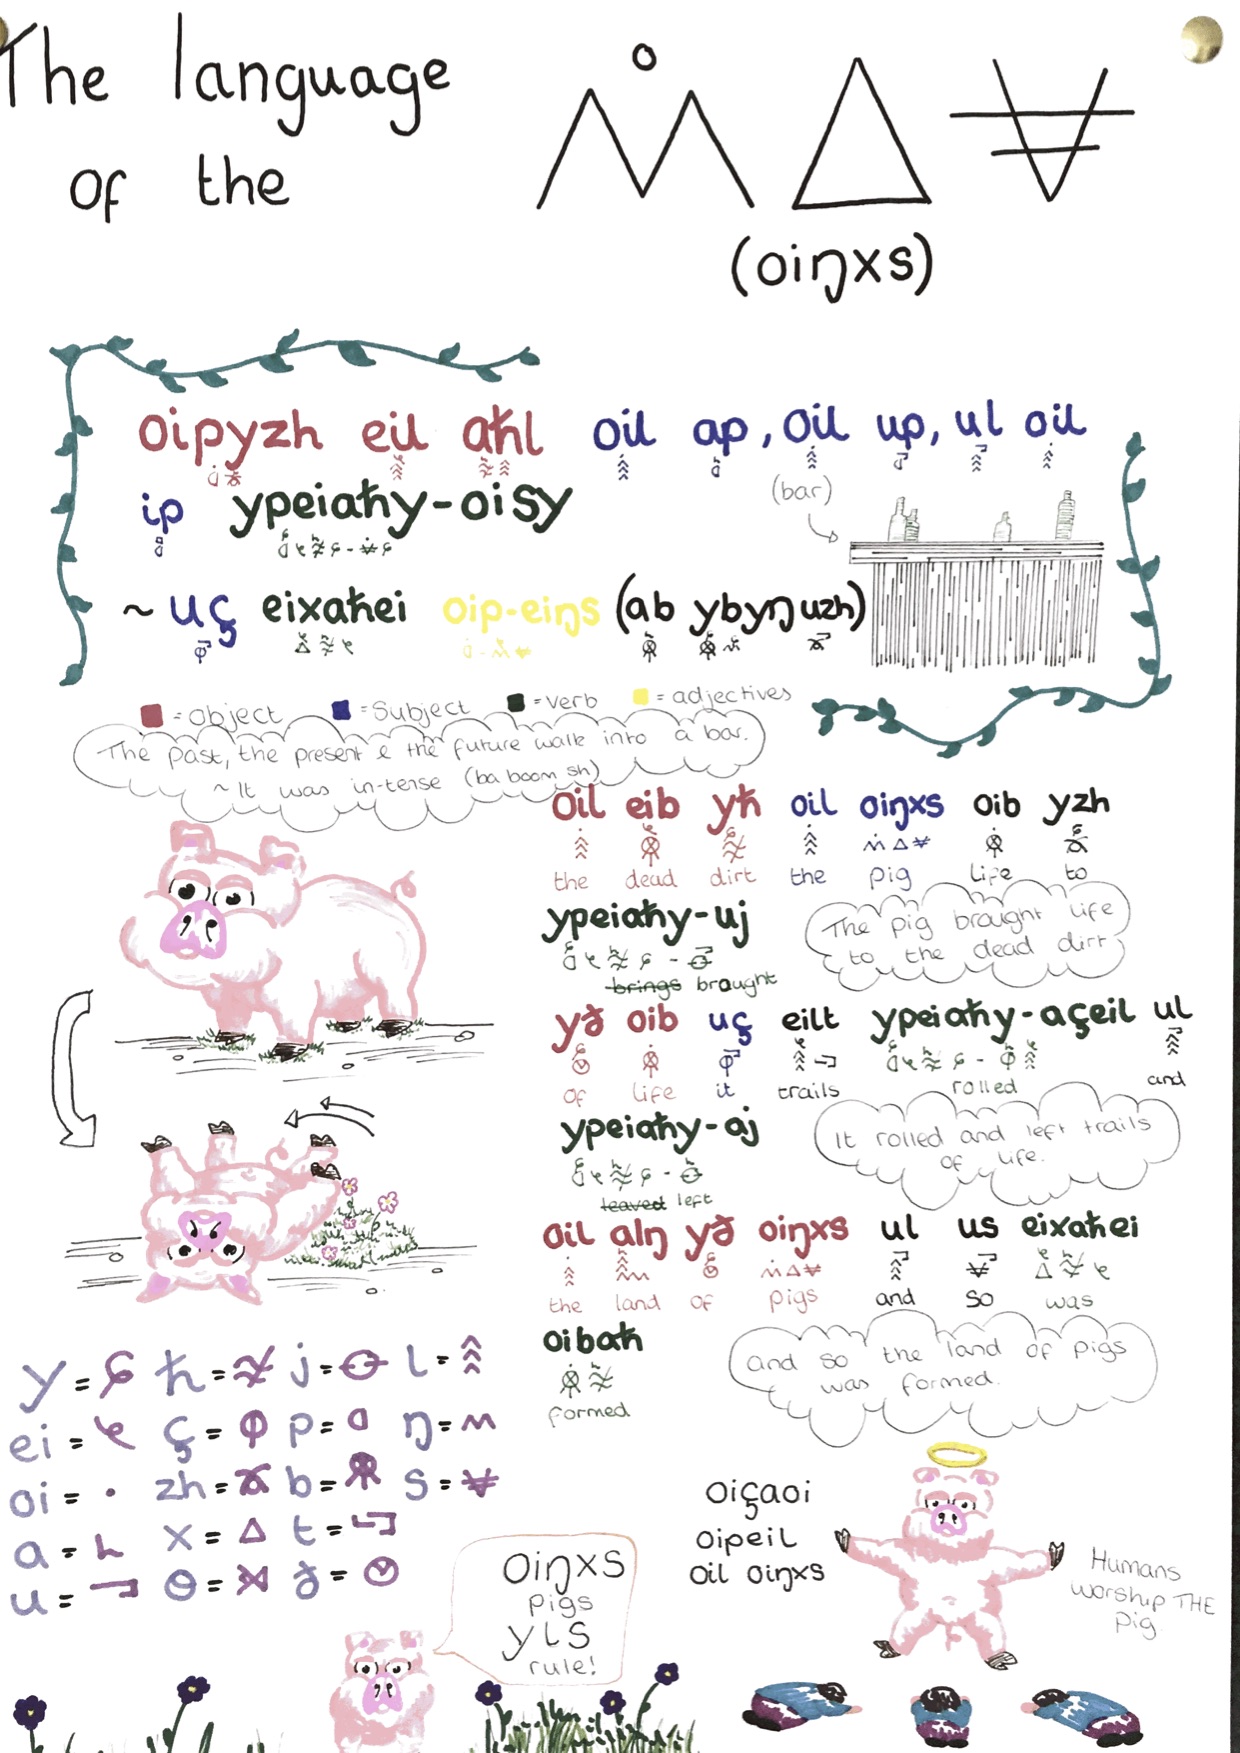 The language
of the
(oiŋxs)
oipyzh eil aħl oil ap, oil up, ul oil
(bar)
ip ypeiaħy-oisy
~ uç eixaħei oip-eiŋs (ab ybyŋ uzh)
= object = subject = verb = adjectives
The past, the present & the future walk into a bar.
~It was in-tense (ba boom sh)
oil eib yħ oil oiŋxs oib yzh
the dead dirt the pig life to
ypeiaħy-uj
brings brought
The pig brought life
to the dead dirt
yð oib uç eilt ypeiaħy-açeil ul
of life it trails rolled and
ypeiaħy-aj
leaved left
It rolled and left trails
of life.
oil alŋ yð oiŋxs ul us eixaħei
the land of pigs and so was
oibaħ
formed
and so the land of pigs
was formed.
y = ħ = j = l =
ei = ç = p = ŋ =
oi = zh = b = s =
a = x = t =
u = θ = ð =
oiçaoi
oipeil
oil oiŋxs
Humans
worship THE
pig
oiŋxs
pigs
yls
rule!